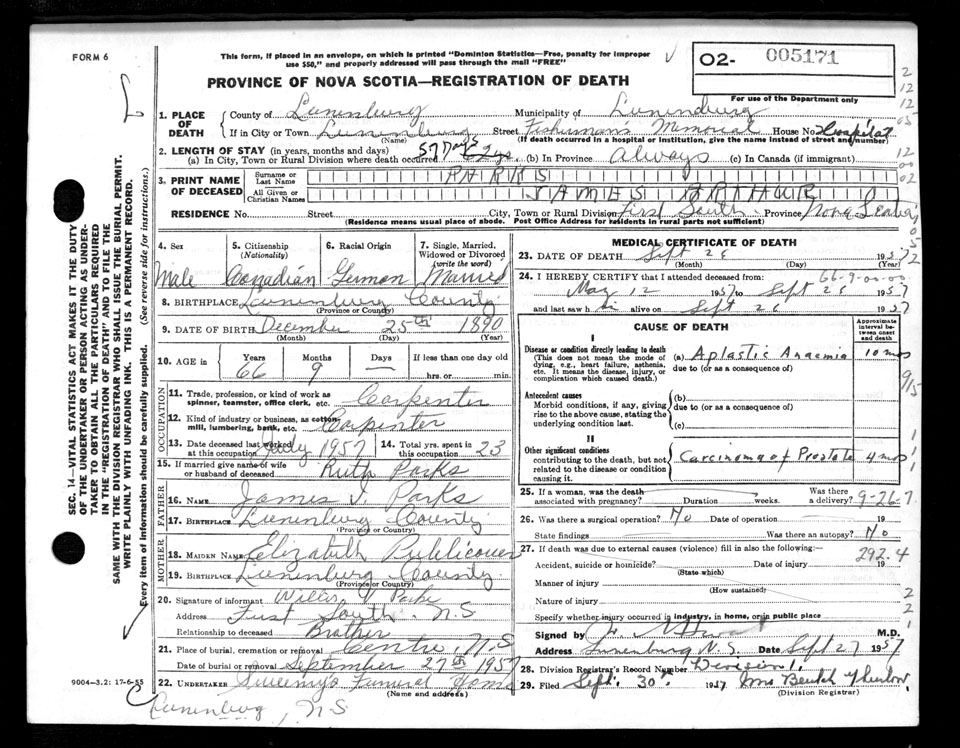 FORM 6
This form, if placed in an envelope, on which is printed "Dominion Statistics—Free, penalty for improper
use $50," and properly addressed will pass through the mail "FREE"
O2- 005171
For use of the Department only
PROVINCE OF NOVA SCOTIA—REGISTRATION OF DEATH
1. PLACE OF DEATH
County of Lunenburg Municipality of Lunenburg
If in City or Town Lunenburg Street Fisherman's Memorial House No. Hospital
(Name) (If death occurred in a hospital or institution, give the name instead of street and number)
2. LENGTH OF STAY (in years, months and days)
(a) In City, Town or Rural Division where death occurred 57 Days (b) In Province Always (c) In Canada (if immigrant)
3. PRINT NAME OF DECEASED
Surname or Last Name PARKS
All Given or Christian Names JAMES ARTHUR
RESIDENCE No. Street City, Town or Rural Division First South Province Nova Scotia
(Residence means usual place of abode. Post Office Address for residents in rural parts not sufficient)
4. Sex 5. Citizenship (Nationality) 6. Racial Origin 7. Single, Married, Widowed or Divorced (write the word)
Male Canadian German Married
8. BIRTHPLACE Lunenburg County
(Province or Country)
9. DATE OF BIRTH December 25th 1890
(Month) (Day) (Year)
10. AGE in Years Months Days If less than one day old
66 9 — hrs. or min.
OCCUPATION
11. Trade, profession, or kind of work as
spinner, teamster, office clerk, etc. Carpenter
12. Kind of industry or business, as cotton-
mill, lumbering, bank, etc. Carpenter
13. Date deceased last worked
at this occupation July 1957 14. Total yrs. spent in this occupation 23
15. If married give name of wife
or husband of deceased Ruth Parks
FATHER
16. NAME James J. Parks
17. BIRTHPLACE Lunenburg County
(Province or Country)
MOTHER
18. MAIDEN NAME Elizabeth Publicover
19. BIRTHPLACE Lunenburg County
(Province or Country)
20. Signature of informant Parks
Address First South N.S
Relationship to deceased Brother
21. Place of burial, cremation or removal Centre, N.S
Date of burial or removal September 27th 1957
22. UNDERTAKER Sweeny's Funeral Home
(Name and address)
Lunenburg, N.S
9004—3.2: 17-6-55
SEC. 14—VITAL STATISTICS ACT MAKES IT THE DUTY
OF THE UNDERTAKER OR PERSON ACTING AS UNDER-
TAKER TO OBTAIN ALL THE PARTICULARS REQUIRED
IN THE "REGISTRATION OF DEATH" AND TO FILE THE
SAME WITH THE DIVISION REGISTRAR WHO SHALL ISSUE THE BURIAL PERMIT.
WRITE PLAINLY WITH UNFADING INK. THIS IS A PERMANENT RECORD.
Every item of information should be carefully supplied. (See reverse side for instructions.)
MEDICAL CERTIFICATE OF DEATH
23. DATE OF DEATH Sept 1957
(Month) (Day) (Year)
66-9-00-00
24. I HEREBY CERTIFY that I attended deceased from:
May 12 1957 to Sept 1957
and last saw h alive on Sept 1957
CAUSE OF DEATH
Approximate interval between onset and death
I
Disease or condition directly leading to death
(This does not mean the mode of
dying, e.g., heart failure, asthenia,
etc. It means the disease, injury, or
complication which caused death.)
(a) Aplastic Anaemia 10 mos
due to (or as a consequence of)
Antecedent causes
Morbid conditions, if any, giving
rise to the above cause, stating the
underlying condition last.
(b)
due to (or as a consequence of)
(c)
II
Other significant conditions
contributing to the death, but not
related to the disease or condition
causing it.
Carcinoma of Prostate 4 mos
25. If a woman, was the death
associated with pregnancy? Duration weeks. Was there a delivery?
9-26-7
26. Was there a surgical operation? No Date of operation 19
State findings Was there an autopsy? No
27. If death was due to external causes (violence) fill in also the following:—
292.4
Accident, suicide or homicide? Date of injury 19
(State which)
Manner of injury
(How sustained)
Nature of injury
Specify whether injury occurred in industry, in home, or in public place
Signed by M.D.
Address Lunenburg N.S. Date Sept 27 1957
28. Division Registrar's Record Number Division 11
29. Filed Sept. 30 1957 Mrs
(Division Registrar)